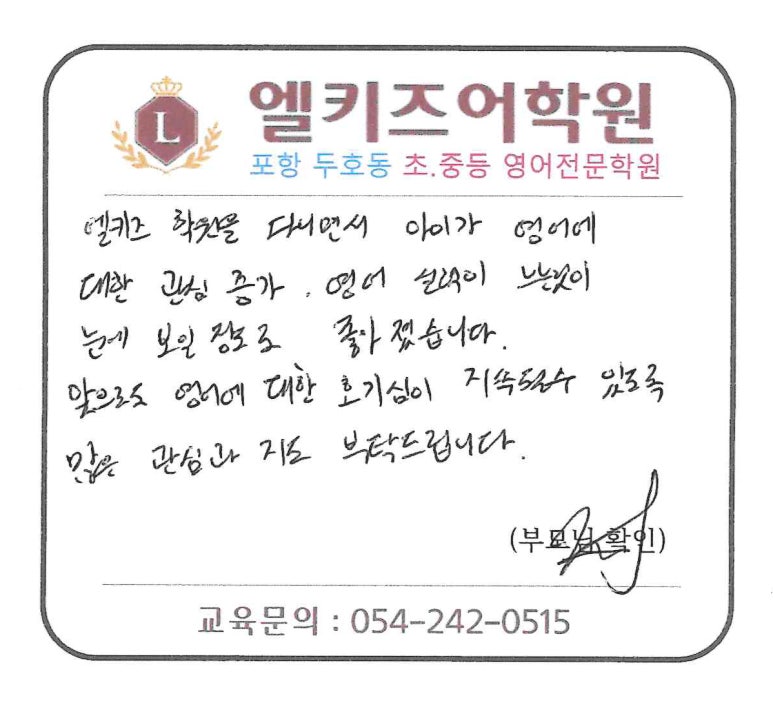 L
엘키즈어학원
포항 두호동 초.중등 영어전문학원
엘키즈 학원을 다니면서 아이가 영어에
대한 관심 증가. 영어 실력이 느는것이
눈에 보일 정도로 좋아졌습니다.
앞으로도 영어에 대한 호기심이 지속될수 있도록
많은 관심과 지도 부탁드립니다.
(부모님 확인)
교육문의 : 054-242-0515